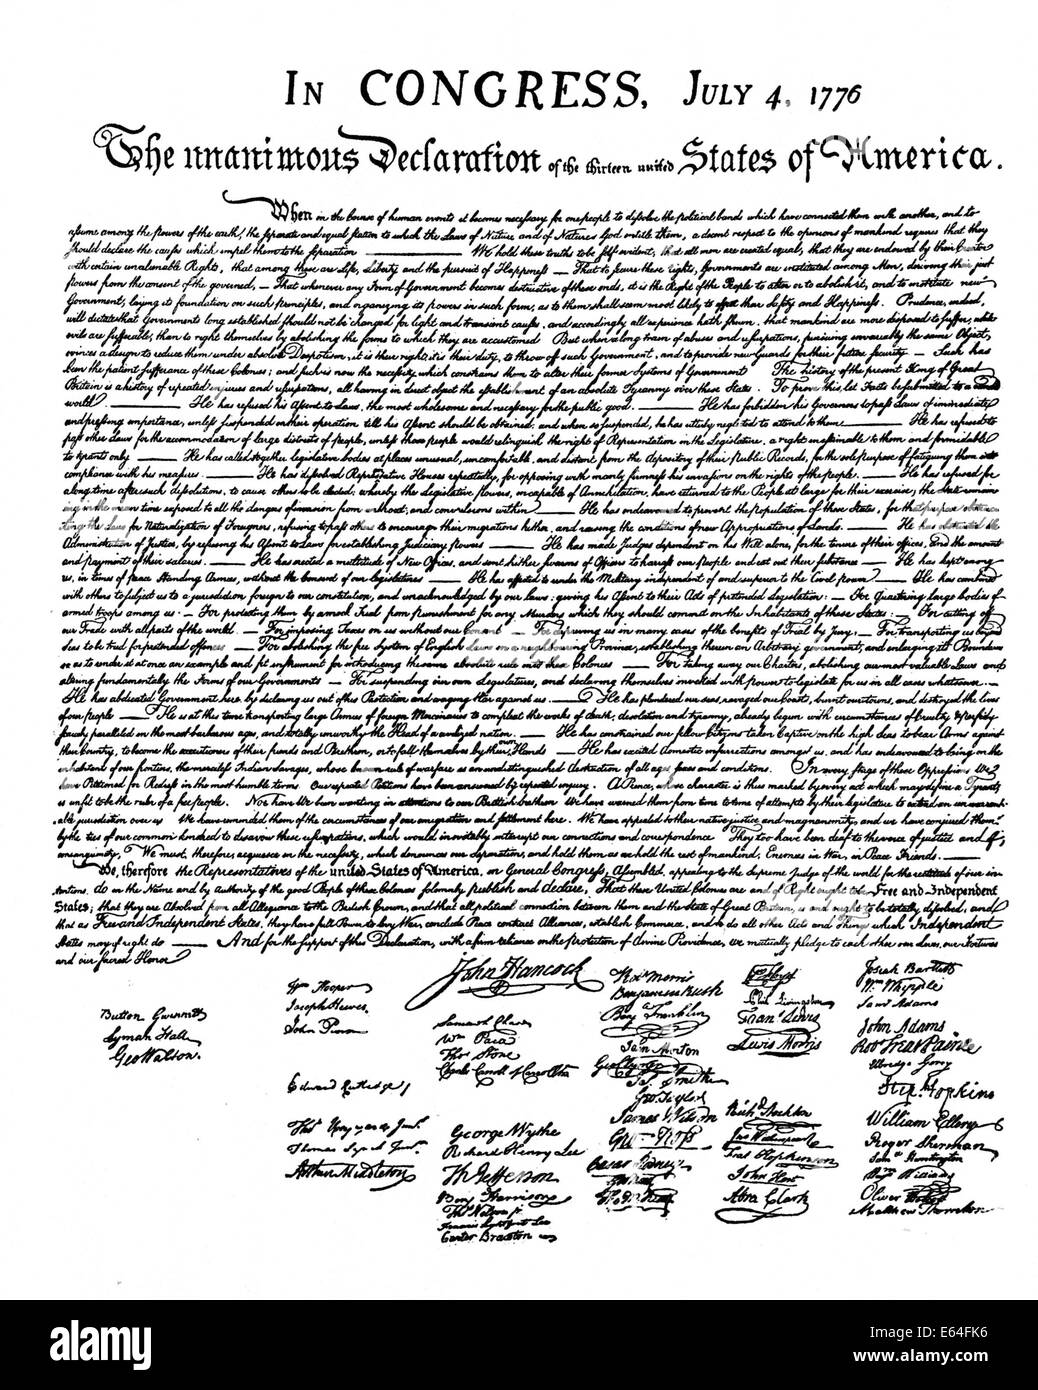 IN CONGRESS, JULY 4, 1776
The unanimous Declaration of the thirteen united States of America.
When in the Course of human events it becomes necessary for one people to dissolve the political bands which have connected them with another, and to
assume among the powers of the earth, the separate and equal station to which the Laws of Nature and of Nature's God entitle them, a decent respect to the opinions of mankind requires that they
should declare the causes which impel them to the separation. We hold these truths to be self-evident, that all men are created equal, that they are endowed by their Creator
with certain unalienable Rights, that among these are Life, Liberty and the pursuit of Happiness — That to secure these rights, Governments are instituted among Men, deriving their just
powers from the consent of the governed, — That whenever any Form of Government becomes destructive of these ends, it is the Right of the People to alter or to abolish it, and to institute new
Government, laying its foundation on such principles, and organizing its powers in such form, as to them shall seem most likely to effect their Safety and Happiness. Prudence, indeed,
will dictate that Governments long established should not be changed for light and transient causes; and accordingly all experience hath shewn, that mankind are more disposed to suffer, while
evils are sufferable, than to right themselves by abolishing the forms to which they are accustomed. But when a long train of abuses and usurpations, pursuing invariably the same Object,
evinces a design to reduce them under absolute Despotism, it is their right, it is their duty, to throw off such Government, and to provide new Guards for their future security. — Such has
been the patient sufferance of these Colonies; and such is now the necessity which constrains them to alter their former Systems of Government. The history of the present King of Great
Britain is a history of repeated injuries and usurpations, all having in direct object the establishment of an absolute Tyranny over these States. To prove this, let Facts be submitted to a candid
world. He has refused his Assent to Laws, the most wholesome and necessary for the public good. He has forbidden his Governors to pass Laws of immediate
and pressing importance, unless suspended in their operation till his Assent should be obtained; and when so suspended, he has utterly neglected to attend to them. He has refused to
pass other Laws for the accommodation of large districts of people, unless those people would relinquish the right of Representation in the Legislature, a right inestimable to them and formidable
to tyrants only. He has called together legislative bodies at places unusual, uncomfortable, and distant from the depository of their Public Records, for the sole purpose of fatiguing them into
compliance with his measures. He has dissolved Representative Houses repeatedly, for opposing with manly firmness his invasions on the rights of the people. He has refused for
a long time, after such dissolutions, to cause others to be elected; whereby the Legislative Powers, incapable of Annihilation, have returned to the People at large for their exercise; the State remain-
ing in the mean time exposed to all the dangers of invasion from without, and convulsions within. He has endeavoured to prevent the Population of these States; for that purpose obstruc-
ting the Laws for Naturalization of Foreigners; refusing to pass others to encourage their migrations hither, and raising the conditions of new Appropriations of Lands. He has obstructed the
Administration of Justice, by refusing his Assent to Laws for establishing Judiciary Powers. He has made Judges dependent on his Will alone, for the tenure of their offices, and the amount
and payment of their salaries. He has erected a multitude of New Offices, and sent hither swarms of Officers to harass our people, and eat out their substance. He has kept among
us, in times of peace, Standing Armies, without the Consent of our legislatures. He has affected to render the Military independent of and superior to the Civil power. He has combined
with others to subject us to a jurisdiction foreign to our constitution, and unacknowledged by our laws; giving his Assent to their Acts of pretended Legislation: — For Quartering large bodies of
armed troops among us: — For protecting them by a mock Trial from punishment for any Murders which they should commit on the Inhabitants of these States: — For cutting off
our Trade with all parts of the world: — For imposing Taxes on us without our Consent: — For depriving us in many cases of the benefits of Trial by Jury: — For transporting us beyond
Seas to be tried for pretended offences — For abolishing the free System of English Laws in a neighbouring Province, establishing therein an Arbitrary government, and enlarging its Boundaries
so as to render it at once an example and fit instrument for introducing the same absolute rule into these Colonies: — For taking away our Charters, abolishing our most valuable Laws and
altering fundamentally the Forms of our Governments: — For suspending our own Legislatures, and declaring themselves invested with power to legislate for us in all cases whatsoever. —
He has abdicated Government here, by declaring us out of his Protection and waging War against us. — He has plundered our seas, ravaged our Coasts, burnt our towns, and destroyed the lives
of our people. — He is at this time transporting large Armies of foreign Mercenaries to compleat the works of death, desolation and tyranny, already begun with circumstances of Cruelty & perfidy
scarcely paralleled in the most barbarous ages, and totally unworthy the Head of a civilized nation. — He has constrained our fellow Citizens taken Captive on the high Seas to bear Arms against
their Country, to become the executioners of their friends and Brethren, or to fall themselves by their Hands. — He has excited domestic insurrections amongst us, and has endeavoured to bring on the
inhabitants of our frontiers, the merciless Indian Savages, whose known rule of warfare is an undistinguished destruction of all ages, sexes and conditions. In every stage of these Oppressions We
have Petitioned for Redress in the most humble terms: Our repeated Petitions have been answered by repeated injury. A Prince, whose character is thus marked by every act which may define a Tyrant,
is unfit to be the ruler of a free people. Nor have We been wanting in attentions to our Brittish brethren. We have warned them from time to time of attempts by their legislature to extend an unwarrant-
able jurisdiction over us. We have reminded them of the circumstances of our emigration and settlement here. We have appealed to their native justice and magnanimity, and we have conjured them
by the ties of our common kindred to disavow these usurpations, which would inevitably interrupt our connections and correspondence. They too have been deaf to the voice of justice and of
consanguinity. We must, therefore, acquiesce in the necessity, which denounces our Separation, and hold them, as we hold the rest of mankind, Enemies in War, in Peace Friends. —
We, therefore, the Representatives of the united States of America, in General Congress, Assembled, appealing to the Supreme Judge of the world for the rectitude of our in-
tentions, do in the Name and by Authority of the good People of these Colonies, solemnly publish and declare, That these United Colonies are, and of Right ought to be Free and Independent
States; that they are Absolved from all Allegiance to the British Crown, and that all political connection between them and the State of Great Britain, is and ought to be totally dissolved; and
that as Free and Independent States, they have full Power to levy War, conclude Peace, contract Alliances, establish Commerce, and to do all other Acts and Things which Independent
States may of right do. — And for the support of this Declaration, with a firm reliance on the protection of divine Providence, we mutually pledge to each other our Lives, our Fortunes
and our sacred Honor
Button Gwinnett
Lyman Hall
Geo Walton.
Wm Hooper
Joseph Hewes,
John Penn
Edward Rutledge
Thos Heyward Junr.
Thomas Lynch Junr.
Arthur Middleton
John Hancock
Samuel Chase
Wm Paca
Thos Stone
Charles Carroll of Carrollton
George Wythe
Richard Henry Lee
Th Jefferson
Benj Harrison
Thos Nelson jr.
Francis Lightfoot Lee
Carter Braxton
Robt Morris
Benjamin Rush
Benj Franklin
John Morton
Geo Clymer
Jas Smith
Geo Taylor
James Wilson
Geo Ross
Caesar Rodney
Geo Read
Tho M:Kean
Wm Floyd
Phil Livingston
Frans Lewis
Lewis Morris
Richd Stockton
Jno Witherspoon
Fras Hopkinson
John Hart
Abra Clark
Josiah Bartlett
Wm Whipple
Saml Adams
John Adams
Robt Treat Paine
Elbridge Gerry
Step Hopkins
William Ellery
Roger Sherman
Saml Huntington
Wm Williams
Oliver Wolcott
Matthew Thornton
alamy
alamy
Image ID: E64FK6
www.alamy.com